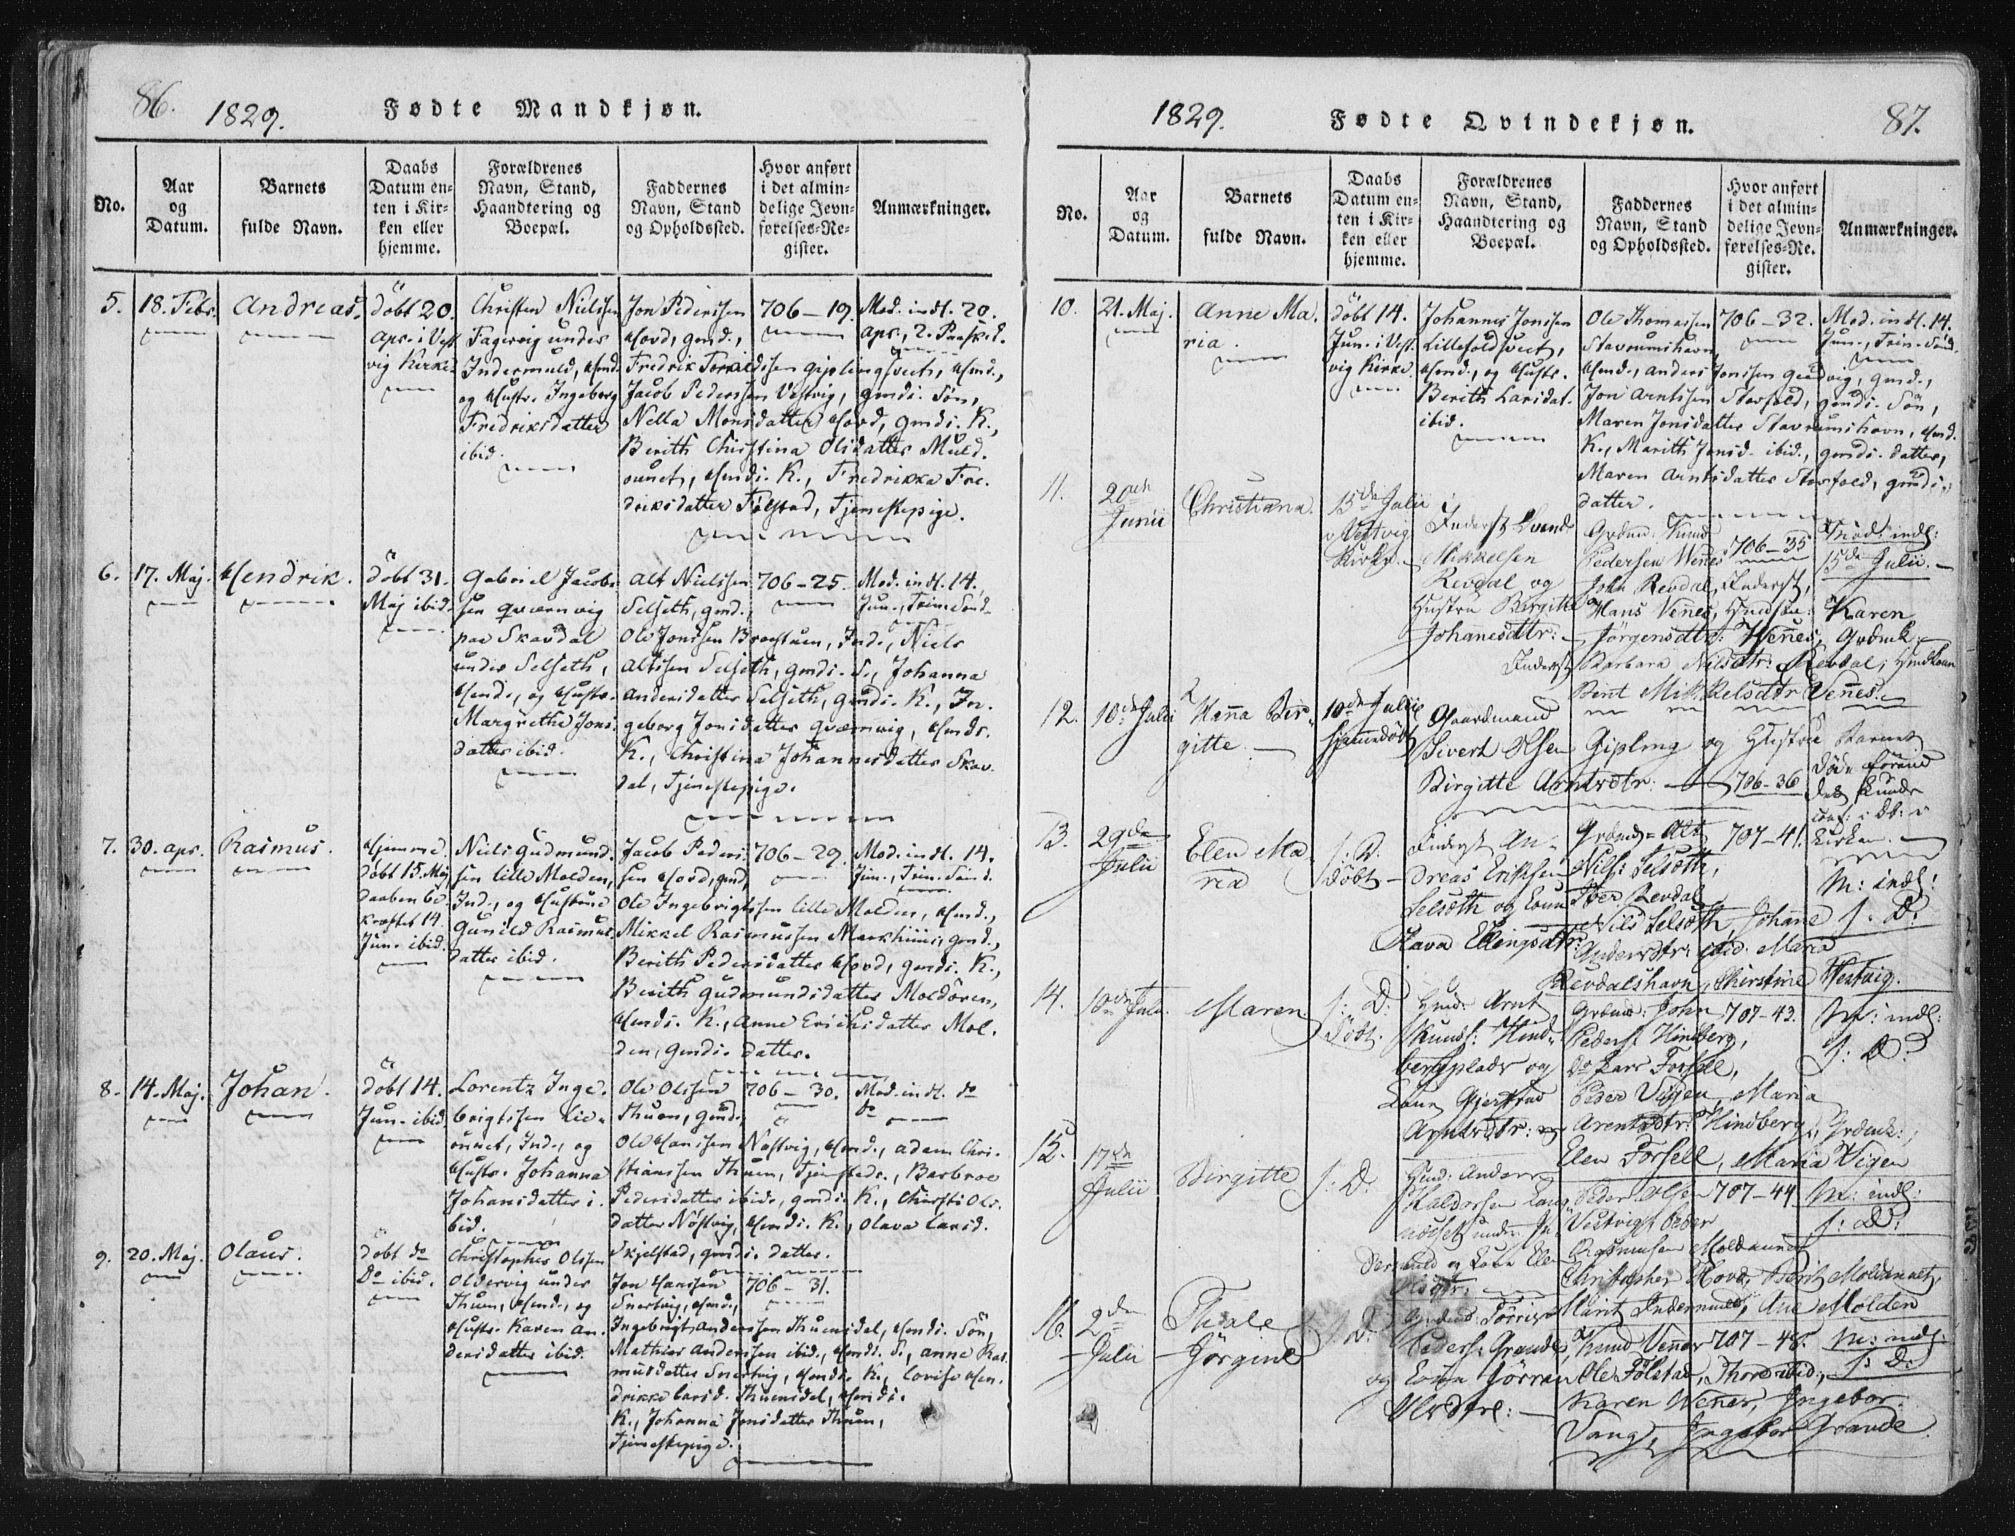 86.
1829.
Fødte Mandkjøn.
No.
Aar
og
Datum.
Barnets
fulde Navn.
Daabs
Datum en-
ten i Kir-
ken eller
hjemme.
Forældrenes
Navn, Stand,
Haandtering og
Boepæl.
Faddernes
Navn, Stand
og Opholdssted.
Hvor anført
i det almin-
delige Jevn-
førelses-Re-
gister.
Anmærkninger.
5.
18. Febr.
Andreas.
döbt 20.
Apr. i Vest
vig Kirke
Christen Nielssen
Fagervig under
Indermuld, Hmd.
og Hustr. Ingeborg
Fredriksdatter
ibid.
Jon Pederssen
Hovd, gmd.,
Fredrik Toraldssen Giplingsveet, Hmd.,
Jacob Pederssen Vestvig, gmds. Sön,
Nella Monsdatter Hovd, gmds. K.,
Berith Christina Olsdatter Muld-
ounet, Hmds. K., Fredrikka Fre-
driksdatter Fölstad, Tjenestepige.
706-19.
Mod. indl. 20.
Apr., 2. Paaskd.
6.
17. Maj.
Hendrik.
döbt 31.
Maj ibid.
Gabriel Jacobs-
sen Qværnvig
paa Skavdal
under Selseth,
Hmd., og Hustr.
Margrethe Jons-
datter ibid.
Alt Nielssen
Selseth, gmd.,
Ole Jonssen Brogtuen, Ind., Niels
Altssen Selseth, gmds. S., Johanna
Andersdatter Selseth, gmds. K., In-
geborg Jonsdatter Qværnvig, Hmds.
K., Christina Johannesdatter Skav-
dal, Tjenestepige.
706-25.
Mod. indl. 14.
Jun., Trin. Sönd.
7.
30. Apr.
Rasmus.
Hjemmed.
döbt 15. Maj
daaben be-
kræftet 14.
Jun. ibid.
Niels Gudmund-
sen lille Molden,
Ind., og Hustrue
Gunild Rasmus-
datter ibid.
Jacob Peders-
sen Hovd, gmd.,
Ole Ingebrigtssen lille Molden, Hmd.,
Mikkel Rasmussen Markhuus, gmd.,
Berith Pedersdatter Hovd, gmds. K.,
Berith Gudmundsdatter Moldören,
Hmds. K., Anne Erichsdatter Mol-
den, gmds. datter.
706-29.
Mod. indl. 14.
Jun., Trin. Sönd.
8.
14. Maj.
Johan.
döbt 14.
Jun. ibid
Lorentz Inge-
brigtssen Lie-
ounet, Ind., og
Hustr. Johanna
Johansdatter i-
bid.
Ole Olssen
Thuen, gmd.
Ole Hanssen Nöstvig, Hmd., Adam Chri-
stianssen Thuen, Tjenestedr., Barbroe
Pedersdatter ibid., gmds. K., Chirsti Ols-
datter Nöstvig, Hmds. K., Olava Larsd.
Skjelstad, gmds. datter.
706-30.
Mod. indl. do
do
9.
20. Maj.
Olaus.
döbt do
Do ibid.
Christopher Olssen
Oldervig under
Thuen, Hmd., og
Hustr. Karen An-
dersdatter ibid.
Jon Hanssen
Snertvig, Hmd.,
Ingebrigt Anderssen Thuensdel, Hmds. Sön,
Mathias Anderssen ibid., Hmds. S., Anne Ras-
musdatter Snertvig, Hmds. K., Lovise Hen-
drikke Larsd. Thuensdel, Hmds.
K., Johanna Jonsdatter Thuen,
Tjenestepige.
706-31.
1829.
Fødte Qvindekjøn.
87.
No.
Aar
og
Datum.
Barnets
fulde Navn.
Daabs
Datum en-
ten i Kir-
ken eller
hjemme.
Forældrenes
Navn, Stand,
Haandtering og
Boepæl.
Faddernes
Navn, Stand
og Opholdssted.
Hvor anført
i det almin-
delige Jevn-
førelses-Re-
gister.
Anmærkninger.
10.
21. Maj.
Anne Ma-
ria.
döbt 14.
Jun. i Vest-
vig Kirke.
Johannes Jonssen
Lillefoldsveet,
Hmd., og Hustr.
Berith Larsdat.
ibid.
Ole Thomassen
Stavrumshavn,
Hmd., Anders Jonssen Gudvig, gmd.,
Jon Arntssen Storfold, gmds. Sön,
Maren Jonsdatter Stavrumshavn, Hmd.
K., Marith Jonsd. ibid., gmds. datter,
Maren Arntsdatter Storfold, gmds.
datter.
706-32.
Mod. indl. 14.
Jun., Trin. Sönd.
11.
20de
Junii
Christiana.
15de Julii i
Vestvig
Kirke.
Inderst Svend
Mikkelsen
Revdal og
Hustru Birgitte
Johanesdtr:
Grdmd. Knud
Pedersen Wenes
John Revdal, Inderst,
Hans Venes, Karen
Jörgensdtr: Wenes, Grdmk:
Inderst Barbara Nilsdtr: Revdal,
Berit Mikkelsdtr Venes.
706-35
Mod: indl:
15de Julii.
12.
10de Julii
Hanna Bir-
gitte.
10de Julii
hjemmedöbt
Gaardmand
Sivert Olsen Gipling og Hustru
Birgitte Arntsdtr:
706-36
Barnet
döde forind
det kunde
i
Kirken.
13.
29de
Julii
Elen Ma
ria
J: D:
döbt
Inderst An-
dreas Eriksen
Selsöth og Kone
Olava Ellingsdtr:
Grdmd: Alt
Nils: Selsöth,
Peder Revdal
Nils Selsöth, Johane
Andersdtr: ibid. Maria
Revdalshavn, Christine Westvig.
707-41.
M: indl:
J: D:
14.
10de Julii
Maren
J: D:
Döbt.
Hmd: Arnt
Knuds: Hind-
bergplads og
Kone Gjertrud
Arntsdtr:
Grdmd: John
Peders: Hindberg,
Do Lars Forsell,
Peder Vigen, Maria
Arentsdtr: Hindberg, Grdmk:,
Elen Forsell, Maria Vigen
707-43.
M: indl:
J: D:
15.
17de
Julii
Birgitte
J: D:
Hmd: Anders
Haldorsen Lang
under In
dermuld og Kone Elen
Olsdtr:
Peder Olsen
Vestvig, Peder
Rasmusen Moldaunet
Christopher Hovd, Berit Moldaunet,
Marit Indermuld, Ane Molden
707-44
M: indl:
J: D:
16.
2de
Julii
Thale
Jörgine
J: D:
Grdmd Törris
Peders: Grande
og Kone Jörran
Olsdtr:
Knud Venes
Ole Fölstad, Thord ibid:,
Karen Wenes, Ingebor
Vang, Ingebor Grande
707-48.
M: indl:
J: D: